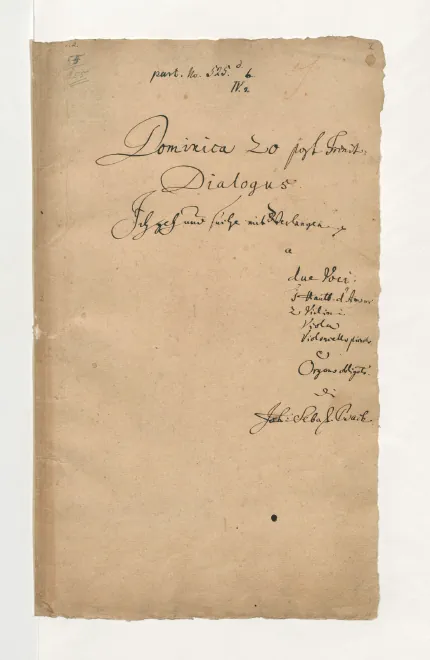 part. No. 525.
IV. 2
Dominica 20 post Trinit.
Dialogus
Ich geh und suche mit Verlangen
a
due Voci.
1 Hautb. d'Amour
2 Violini
Viola
Violoncello piccolo
e
Organo obligato
di
Joh: Sebast. Bach